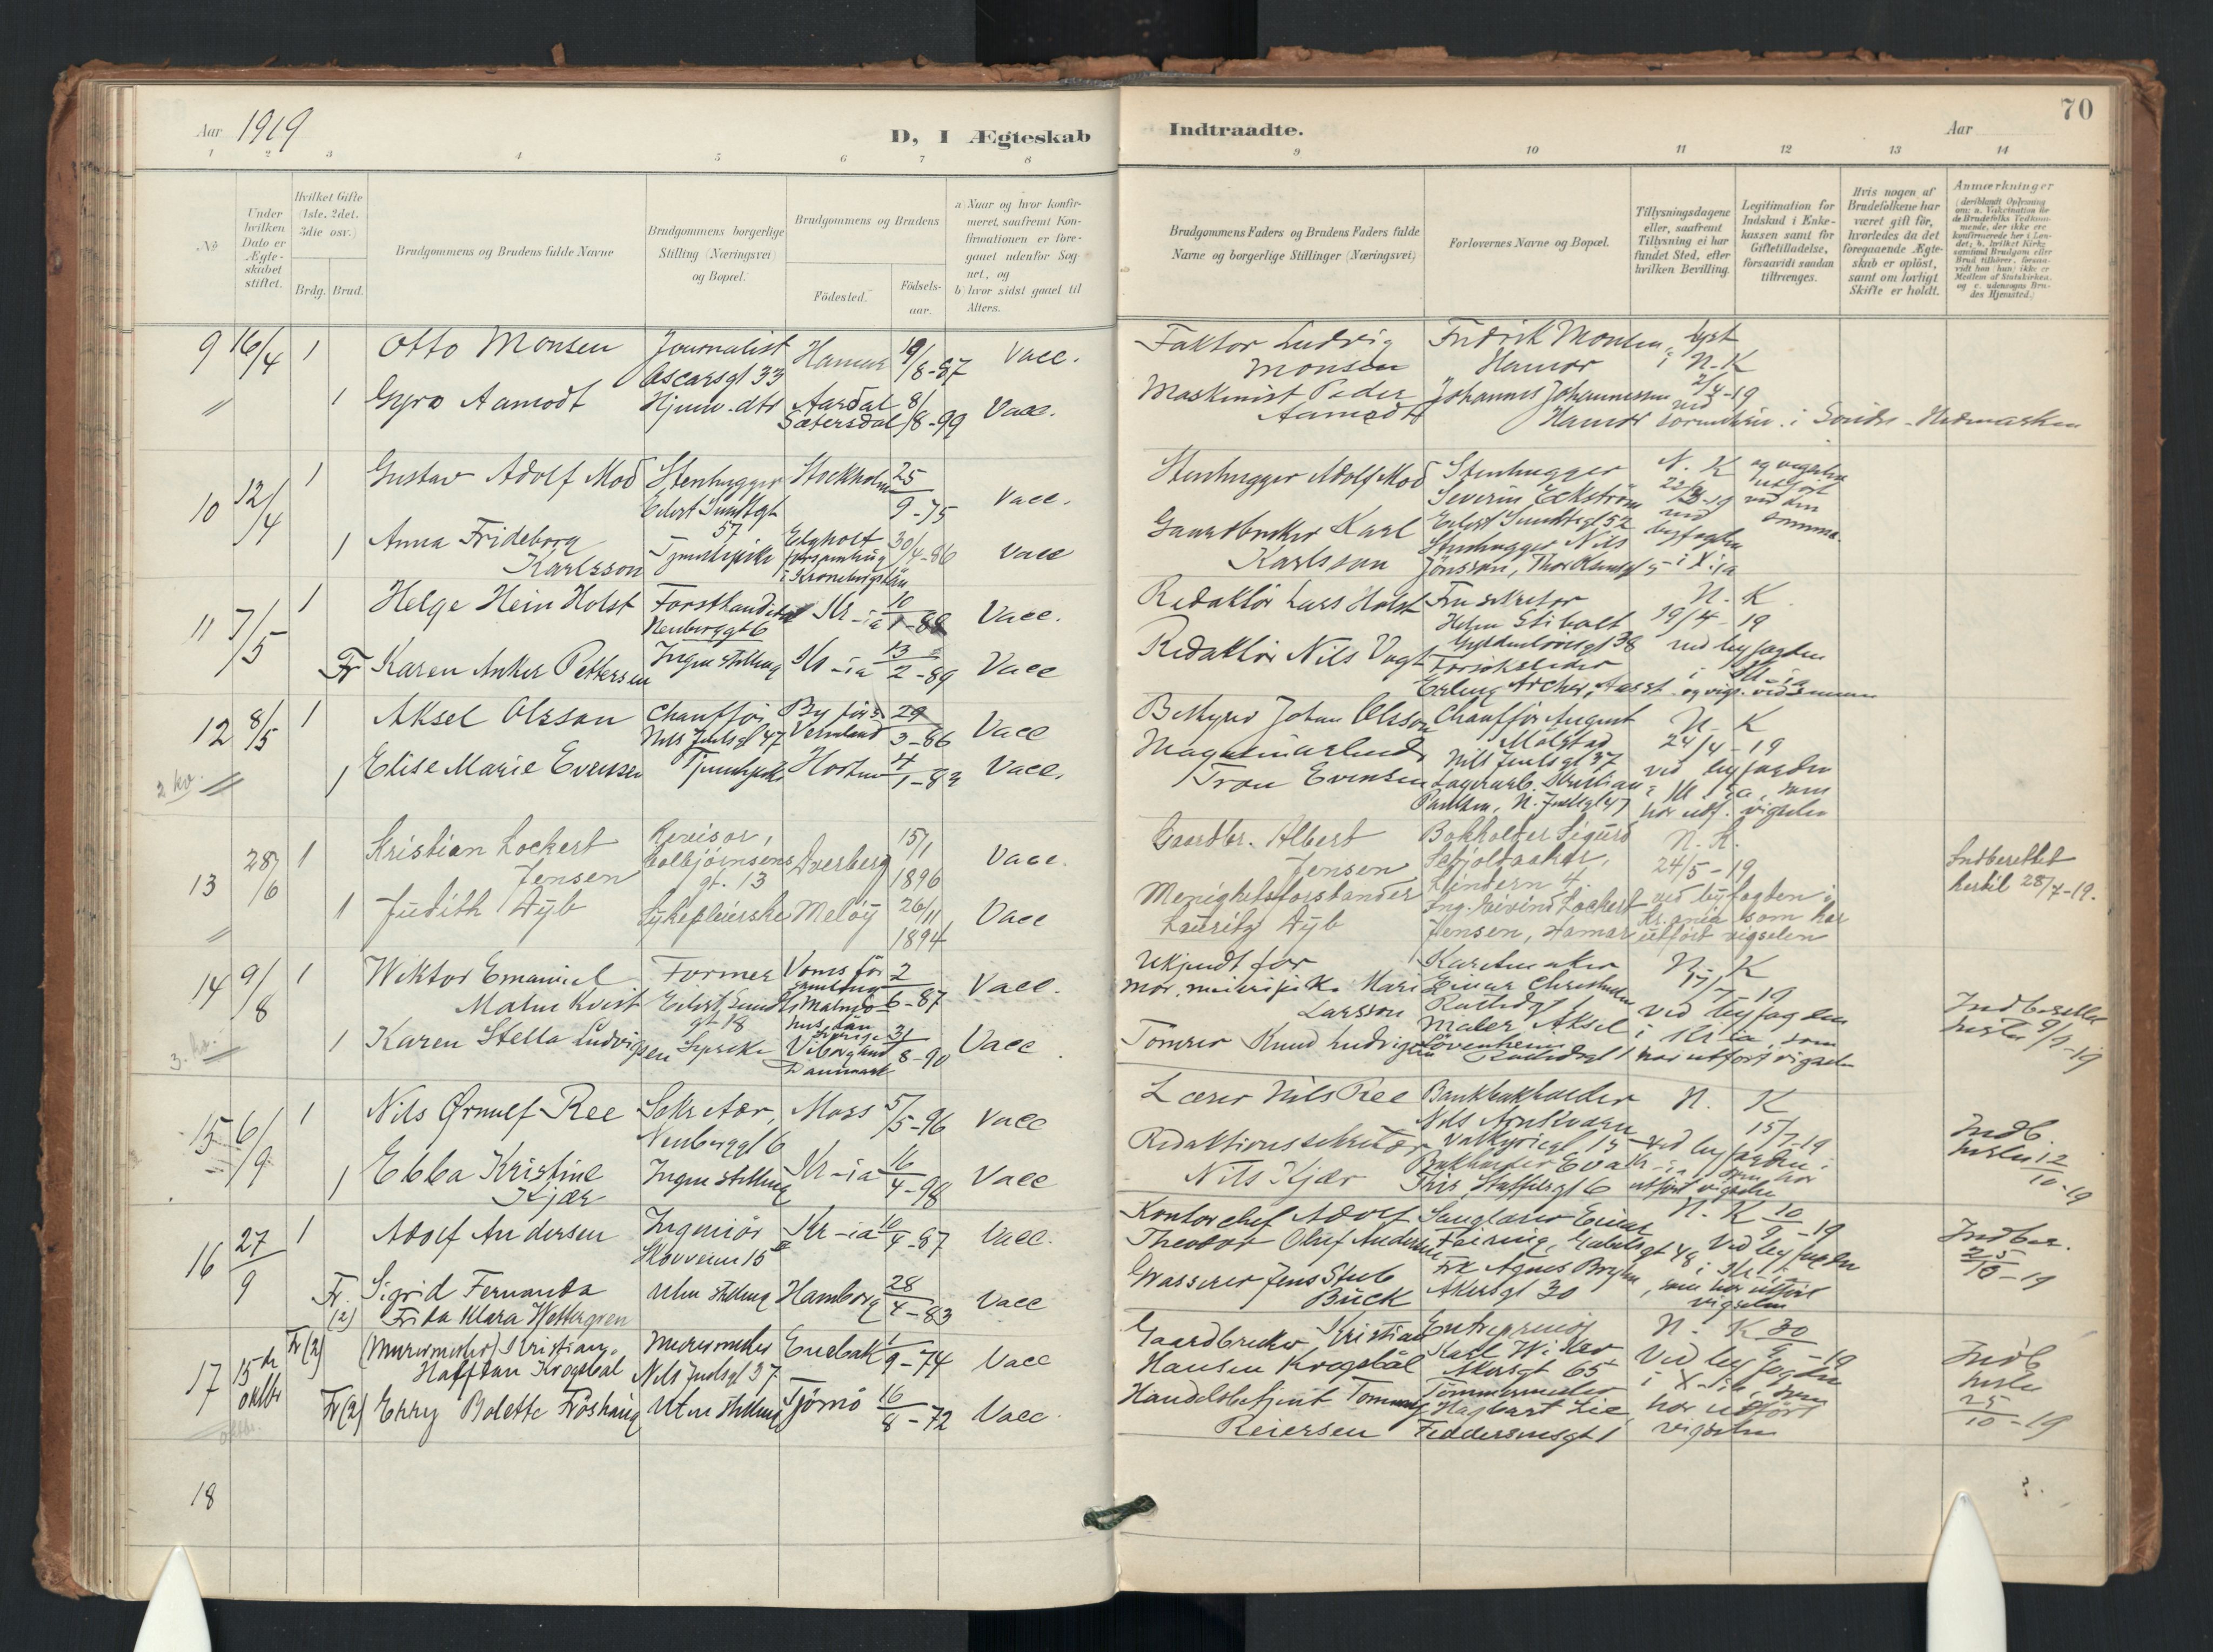 Aar 1919
D, I Ægteskab
1 2 3 4 5 6 7 8
No
Under hvilken Dato er Ægteskabet stiftet.
Hvilket Gifte (1ste, 2det, 3die osv.)
Brdg. Brud.
Brudgommens og Brudens fulde Navne
Brudgommens borgerlige Stilling (Næringsvei) og Bopæl.
Brudgommens og Brudens
Födested.
Födselsaar.
a) Naar og hvor konfirmeret, saafremt Konfirmationen er foregaaet udenfor Sognet, og
b) hvor sidst gaaet til Alters.
9 16/4 1 Otto Monsen Journalist Oscarsgt 33 Hamar 19/8-87 Vacc.
1 Gyro Aamodt Hjemv. dtr Aardal Sætersdal 8/8-99 Vacc.
10 12/4 1 Gustav Adolf Mod Stenhugger Eilert Sundtsgt 57 Stockholm 25/9-75 Vacc.
1 Anna Frideborg Karlsson Tjenestepike Elgholt forsamling i Kronobergslän 30/4-86 Vacc
11 7/5 1 Helge Hein Holst Forstkandidat Neuberggt 6 Kr-ia 10/1-88 Vacc.
Fr Karen Anker Pettersen Ingen stilling Kr-ia 13/2-89 Vacc
12 8/5 1 Aksel Olsson Chaufför Nils Juelsgt 47 By förs. Vermland 29/3-86 Vacc
2 kv. 1 Elise Marie Evensen Tjenestepike Horten 4/1-83 Vacc.
13 28/6 1 Kristian Lockert Jensen Revisor, Colbjörnsens gt. 13 Dverberg 15/1 1896 Vacc.
1 Judith Dyb Sykepleierske Melöy 26/11 1894 Vacc
14 9/8 1 Wiktor Emanuel Malmkvist Former Eilert Sundts gt 18 2/6-87 Vacc.
3. kv. 1 Karen Stella Ludvigsen Viborg Danmark 31/8-90 Vacc.
15 6/9 1 Nils Ørnulf Ree Sekretær, Neuberggt 6 Moss 5/5-96 Vacc
1 Ebba Kristine Kjær Ingen stilling Kr-ia 16/4-98 Vacc
16 27/9 1 Adolf Andersen Ingeniör Skovveien 15 Kr-ia 10/4-87 Vacc.
Fr. (2) Sigrid Fernanda Frida Klara Wettergren Uten stilling Hamborg 28/4-83 Vacc
17 15de oktbr Fr (2) (Murermester) Kristian Haffton Krogsbøl Murermester Nils Juelsgt 37 Enebak 1/9-74 Vacc
Fr (2) Erry Bolette Fröshaug Uten stilling Tjømö 16/8-72 Vacc.
oktbr.
18
Indtraadte.
Aar
70
9 10 11 12 13 14
Brudgommens Faders og Brudens Faders fulde Navne og borgerlige Stillinger (Næringsvei)
Forlovernes Navne og Bopæl.
Tillysningsdagene eller, saafremt Tillysning ei har fundet Sted, efter hvilken Bevilling.
Legitimation for Indskud i Enkekassen samt for Giftetilladelse, forsaavidt saadan tiltrænges.
Hvis nogen af Brudefolkene har været gift för, hvorledes da det foregaaende Ægteskab er oplöst, samt om lovligt Skifte er holdt.
Anmærkninger (deriblandt Oplysning om: a. Vakcination for de Brudefolks Vedkommende, der ikke ere konfirmerede her i Landet; b. hvilket Kirkesamfund Brudgom eller Brud tilhörer, forsaavidt han (hun) ikke er Medlem af Statskirken, og c. udensogns Brudes Hjemsted.)
Faktor Ludvig Monsen Fredrik Monsen, Hamar lyst i N-K 2/4-19
Maskinist Peder Aamodt Johannes Johannessen Hamar ved sorenskriv. i Söndre-Hedmarken
Stenhugger Adolf Mod Stenhugger Severin Eckström Eilert Sundtsgt 52 N. K 22/3-19 ved byfogden i X-ia og vigselen utfört ved den samme.
Gaardbruker Karl Karlsson Stenhugger Nils Jönsson,
Redaktör Lars Holst N. K. 19/4-19 ved byfogden i Kr-ia og vigs. ved samme
Redaktör Nils Vogt Erling Archer,
Bestyrer Johan Olsson Chaufför August Molstad Nils Juelsgt 37 N. K 24/4-19 ved byfogden i Kr-ia, som har utf. vigselen
Tron Evensen Lagerarb. Kristian Paulsen, N. Juelsgt 47
Gaardbr. Albert Jensen Bokholder Sigurd N. K. 24/5-19 ved byfogden i Kr.ania som har utfört vigselen Indberettet hertil 28/7-19.
Menighetsforstander Lauritz Dyb Ing. Eivind Lockert Jensen, Hamar
Ukjendt far N. K 17/7-19 ved byfogden i Kr-ia, som har utfört vigselen Indberettet hertil 9/9-19
Larsson
Tömrer Knud Ludvigsen Maler Aksel Lövenheim
Lærer Nils Ree Bankbokholder Nils Arnkværn Valkyriegt 15 N. K 15/7-19 ved byfogden i Kr-ia som har utfört vigselen Indb. hertil 12/10-19
Redaktionssekretær Nils Kjær Bokholder Eva
Kontorchef Adolf Theodor Oluf Andersen Sanglærer Einar Feiring, Gabelsgt 48 N. K 10/9-19 Ved byfogden i Kr-ia, som har utfört vigselen Indber. 25/10-19
Grosserer Jens Stub Bück Frk Agnes Bryhn Akersgt 30
Gaardbruker Kristian Hansen Krogsbøl Entreprenör Karl Wicker Akersgt 65 N. K 30/9-19 Ved byfogden i X-ia, som har utfört vigselen Indb hertil 25/10-19
Handelsbetjent Tommy Reiersen Tömmermester Hagbart Lie, Feddersensgt 1